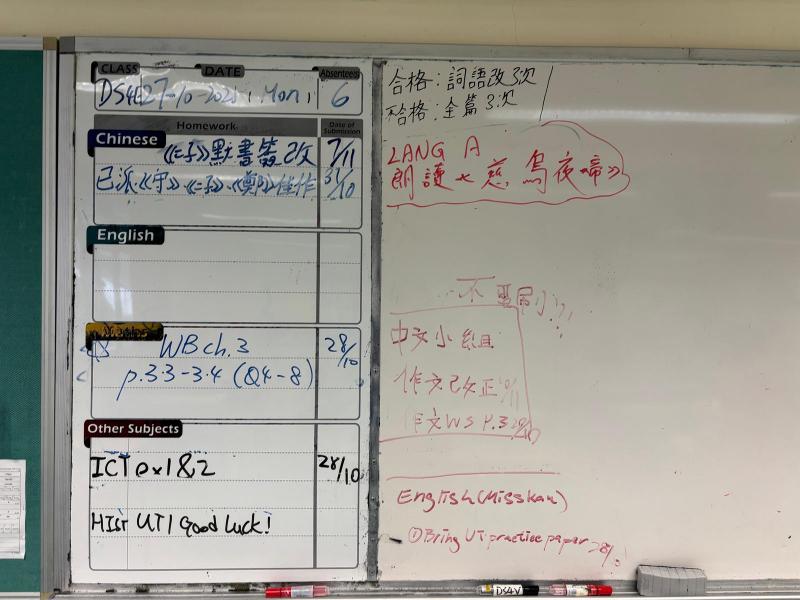 CLASS DATE Absentees
DS4E 27-10-2025, Mon, 6
Homework Date of Submission
Chinese
默書簽改 7/11
已派 佳作 31/10
English
WB ch.3 28/10
p.33-34 (Q4-8)
Other Subjects
ICT ex1&2 28/10
HIST UT1 Good Luck!
合格：詞語改3次
格：全篇3次
LANG A
朗讀《慈烏夜啼》
不要刷
中文小組
作文改正
作文WS P.3
English (Miss Kan)
①Bring UT practice paper 28/10
DS4V